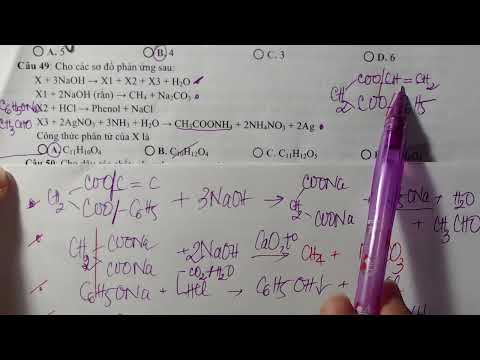 A. 5 B. 4 C. 3 D. 6
Câu 49: Cho các sơ đồ phản ứng sau:
X + 3NaOH → X1 + X2 + X3 + H₂O
X1 + 2NaOH (rắn) → CH₄ + Na₂CO₃
C₆H₅ONa X2 + HCl → Phenol + NaCl
CH₃CHO X3 + 2AgNO₃ + 3NH₃ + H₂O → CH₃COONH₄ + 2NH₄NO₃ + 2Ag
Công thức phân tử của X là
A. C₁₁H₁₀O₄ B. C₁₀H₁₂O₄ C. C₁₁H₁₂O₅
COO/CH=CH₂
CH₂
COO/-C₆H₅
COO/C=C
CH₂ + 3NaOH → CH₂
COO/-C₆H₅
COONa
COONa
+ H₂O
+ CH₃CHO
CH₂ COONa
COONa + 2NaOH CaO,t° → CH₄ +
C₆H₅ONa + [HCl CO₂+H₂O → C₆H₅OH↓ +